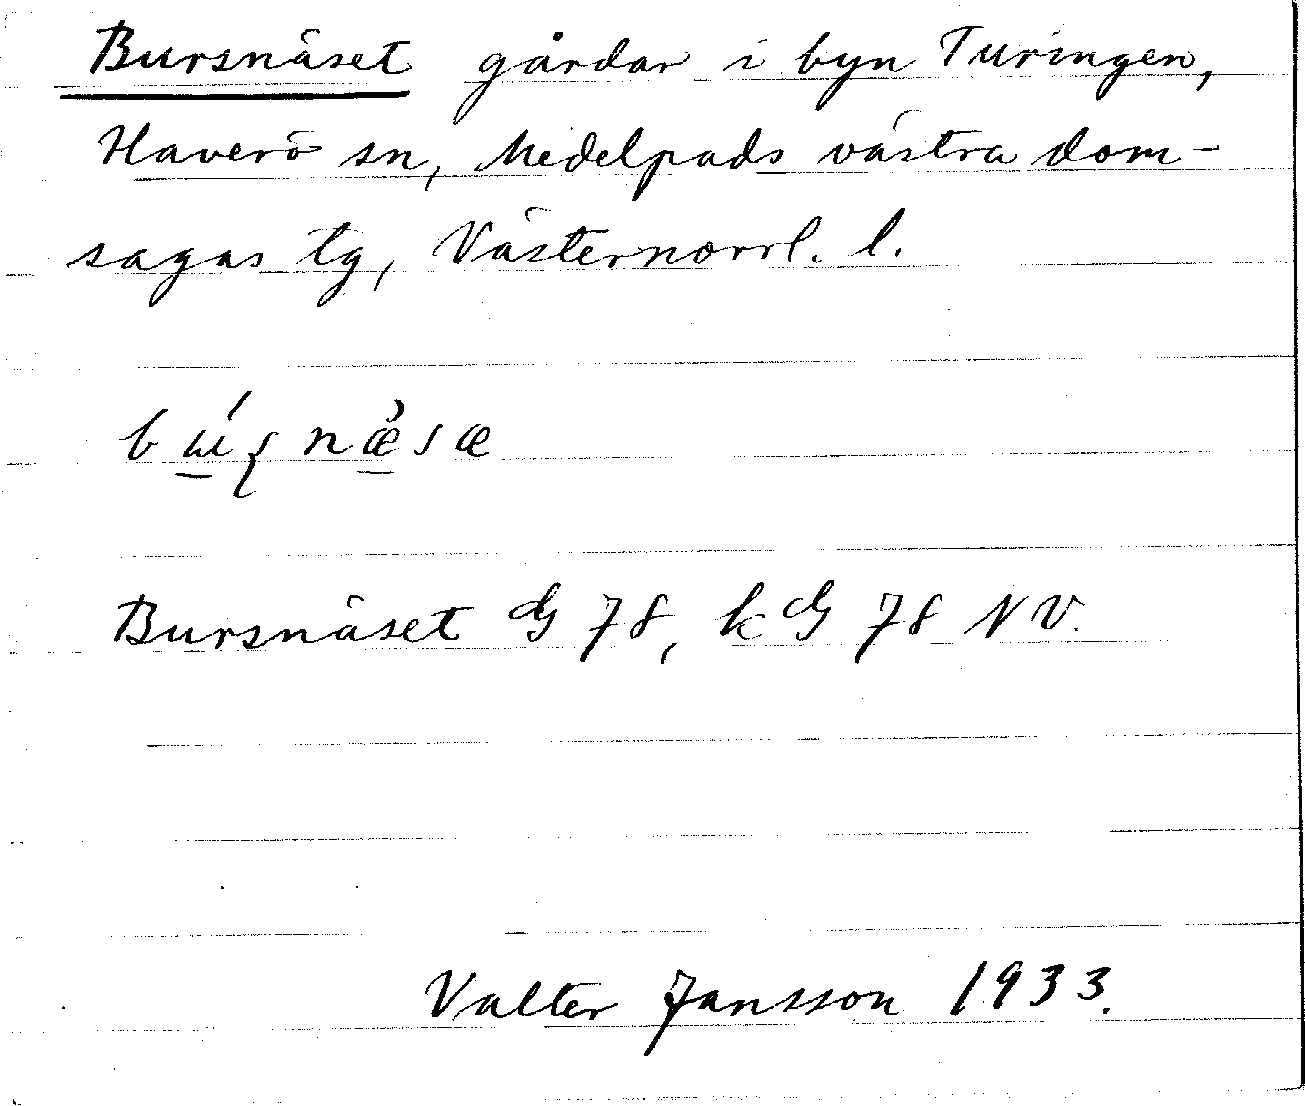 Bursnäset gårdar i byn Turingen,
Haverö sn, Medelpads västra dom-
sagas tg, Västernorrl. l.
Bursnäset G 78, kG 78 NV.
Valter Jansson 1933.